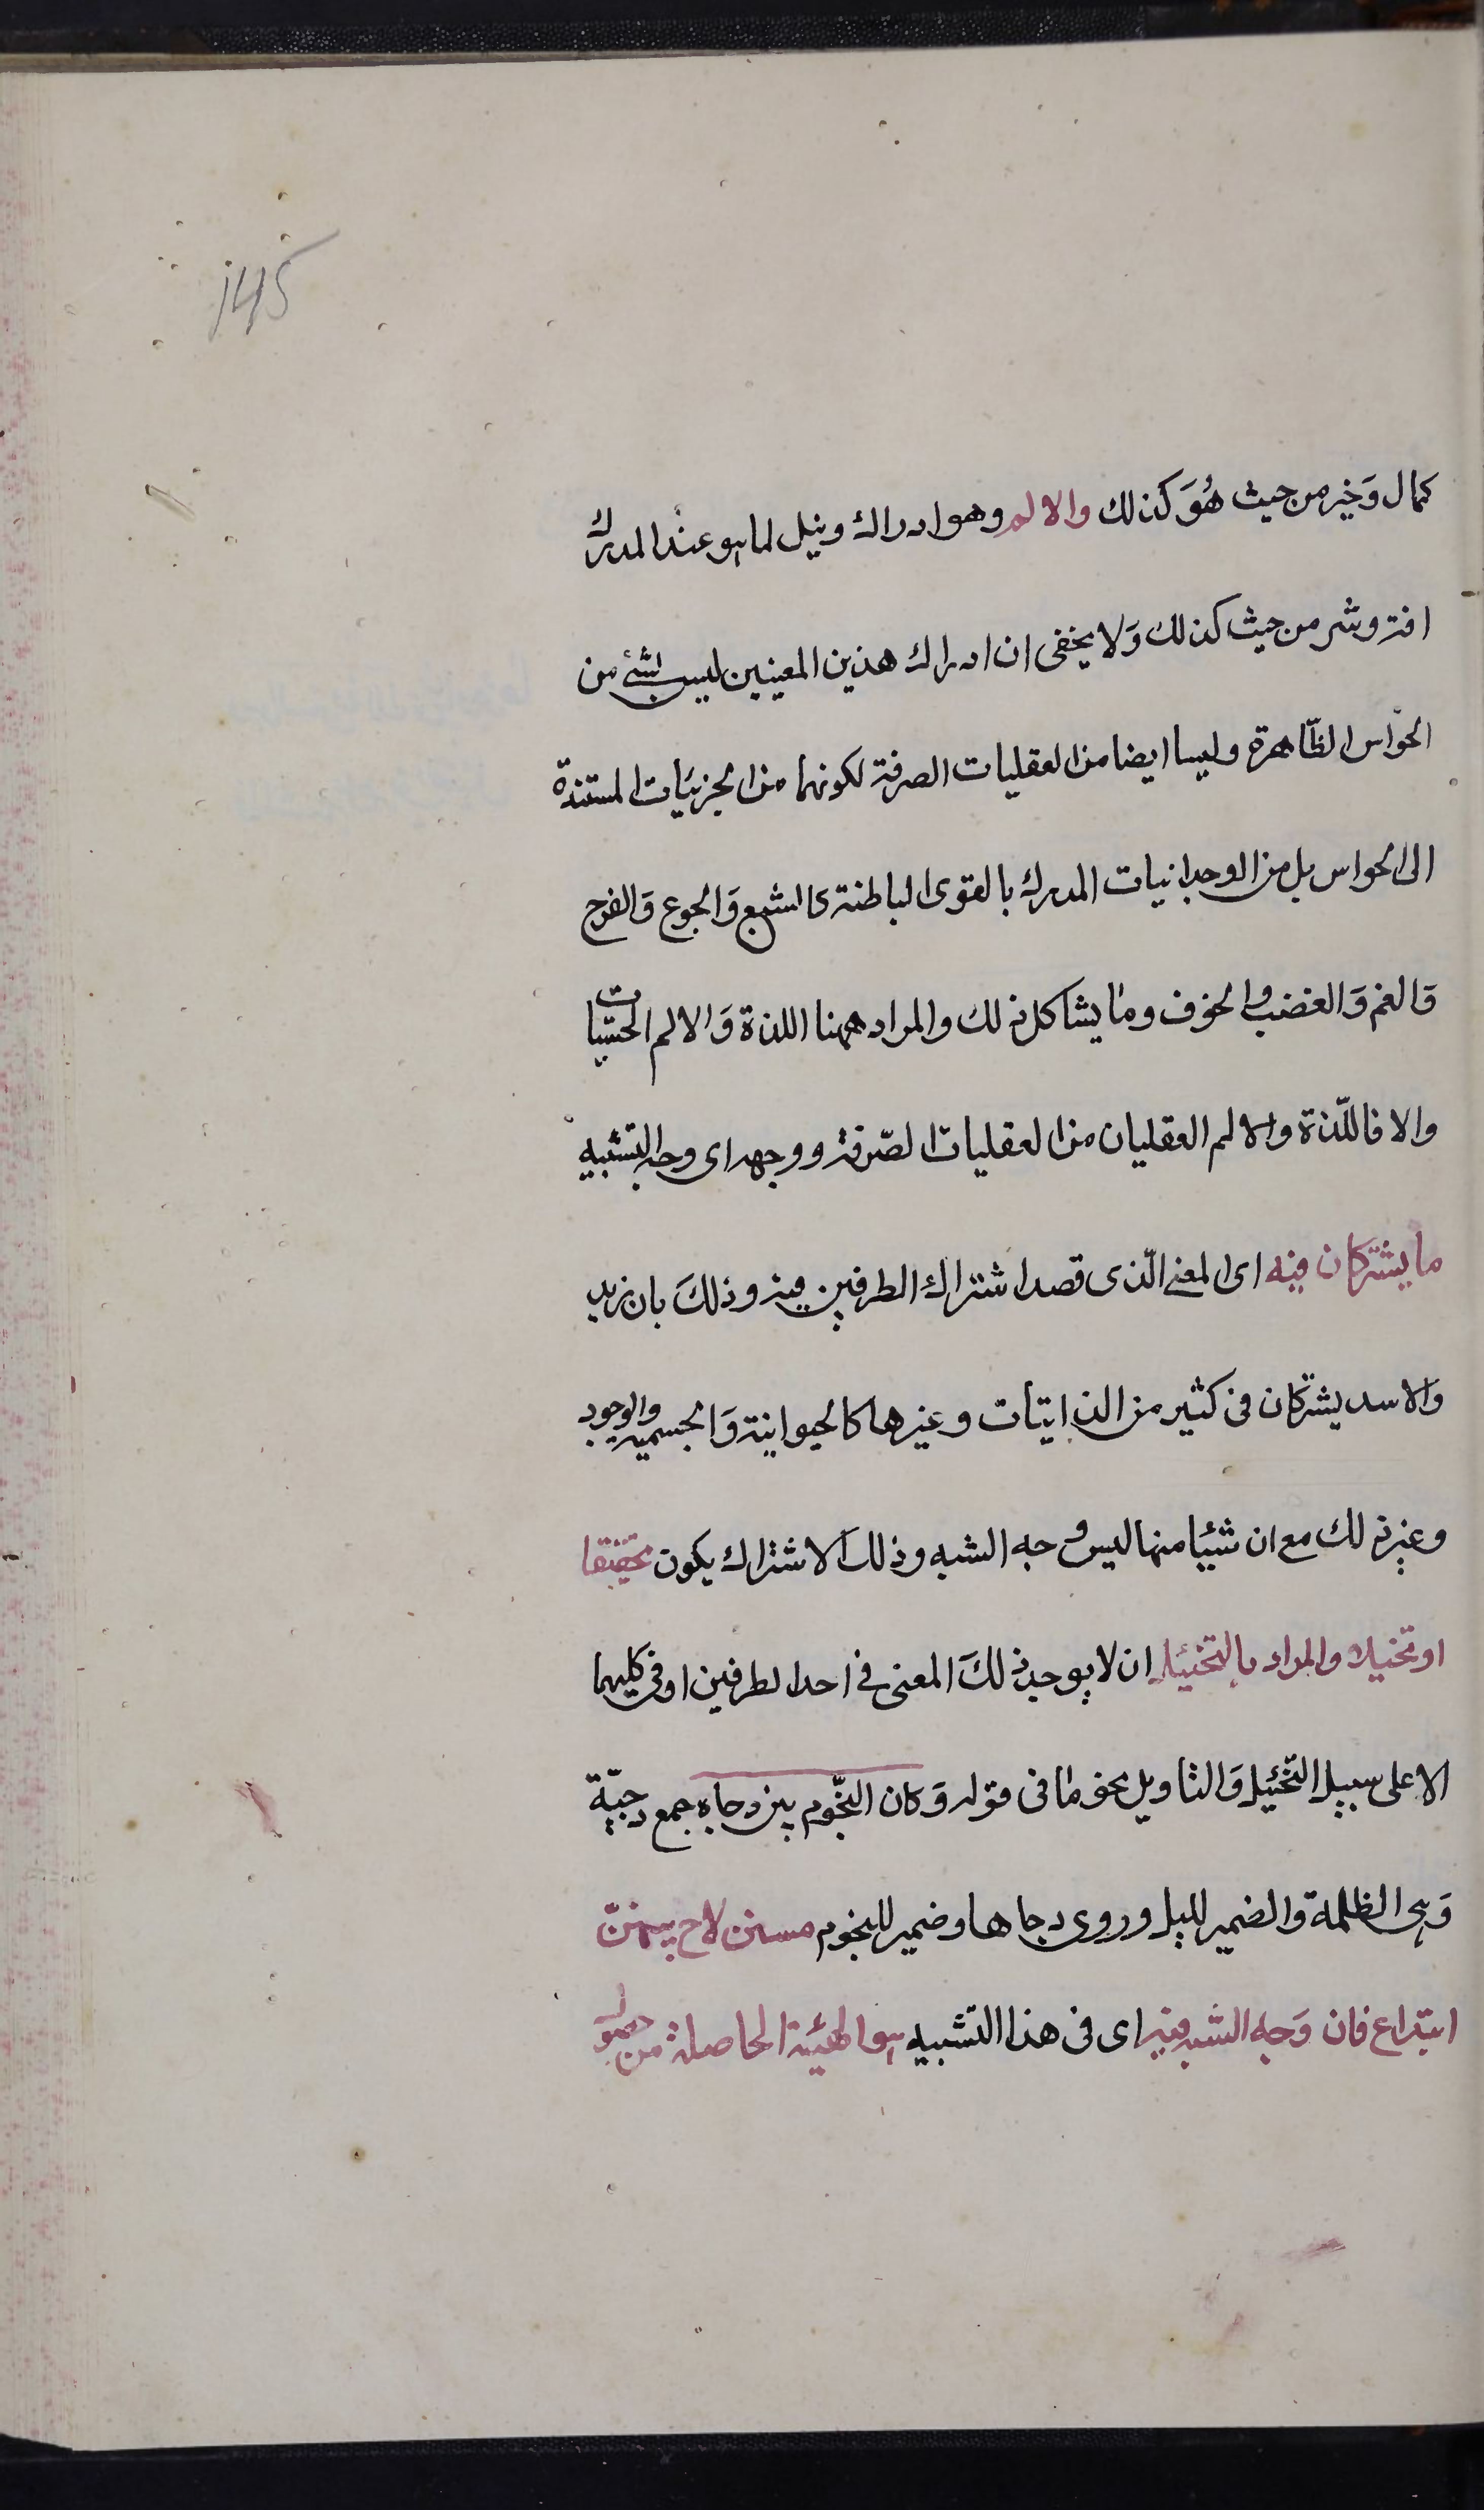 145
كمال وَخير من حيث هُوَ كذلك والالم وهو ادراك ونيل لما هو عند المدرك
افة وشر من حيث كذلك وَلا يخفى ان ادراك هذين المعنيين ليس بشئ من
الحواس الظّاهرة وليسا ايضا من العقليات الصرفة لكونهما من الجزئيات المستندة
الى الحواس بل من الوجدانيات المدرك بالقوى الباطنة كالشبع وَالجوع وَالفرح
وَالغم وَالغضب والخوف وما يشاكل ذلك والمراد ههنا اللذة وَالالم الحسّيات
والا فاللّذة والالم العقليان من العقليات الصّرفة ووجهه اى وجه التشبيه
ما يشتركان فيه اى المعنى الّذى قصد اشتراك الطرفين فيه وذلكَ بان زيد
والاسد يشتركان فى كثير من الذاتيّات وغيرها كالحيوانية وَالجسمية والوجود
وغير ذلك مع ان شيئا منها ليس وجه الشبه وذلك الاشتراك يكون تحقيقا
او تخييلا والمراد بالتخييل ان لا يوجد ذلكَ المعنى فى احد الطرفين او فى كليهما
الا على سبيل التّخييل وَالتاويل نحو ما فى قوله وَكان النّجوم بين دجاه جمع دجيّة
وَهى الظلمة والضمير لليل وروى دجاها وضمير للنجوم سنن لاح بينهنّ
ابتداع فان وَجه الشبه فيه اى فى هذا التشبيه هو الهيئة الحاصلة من حصول